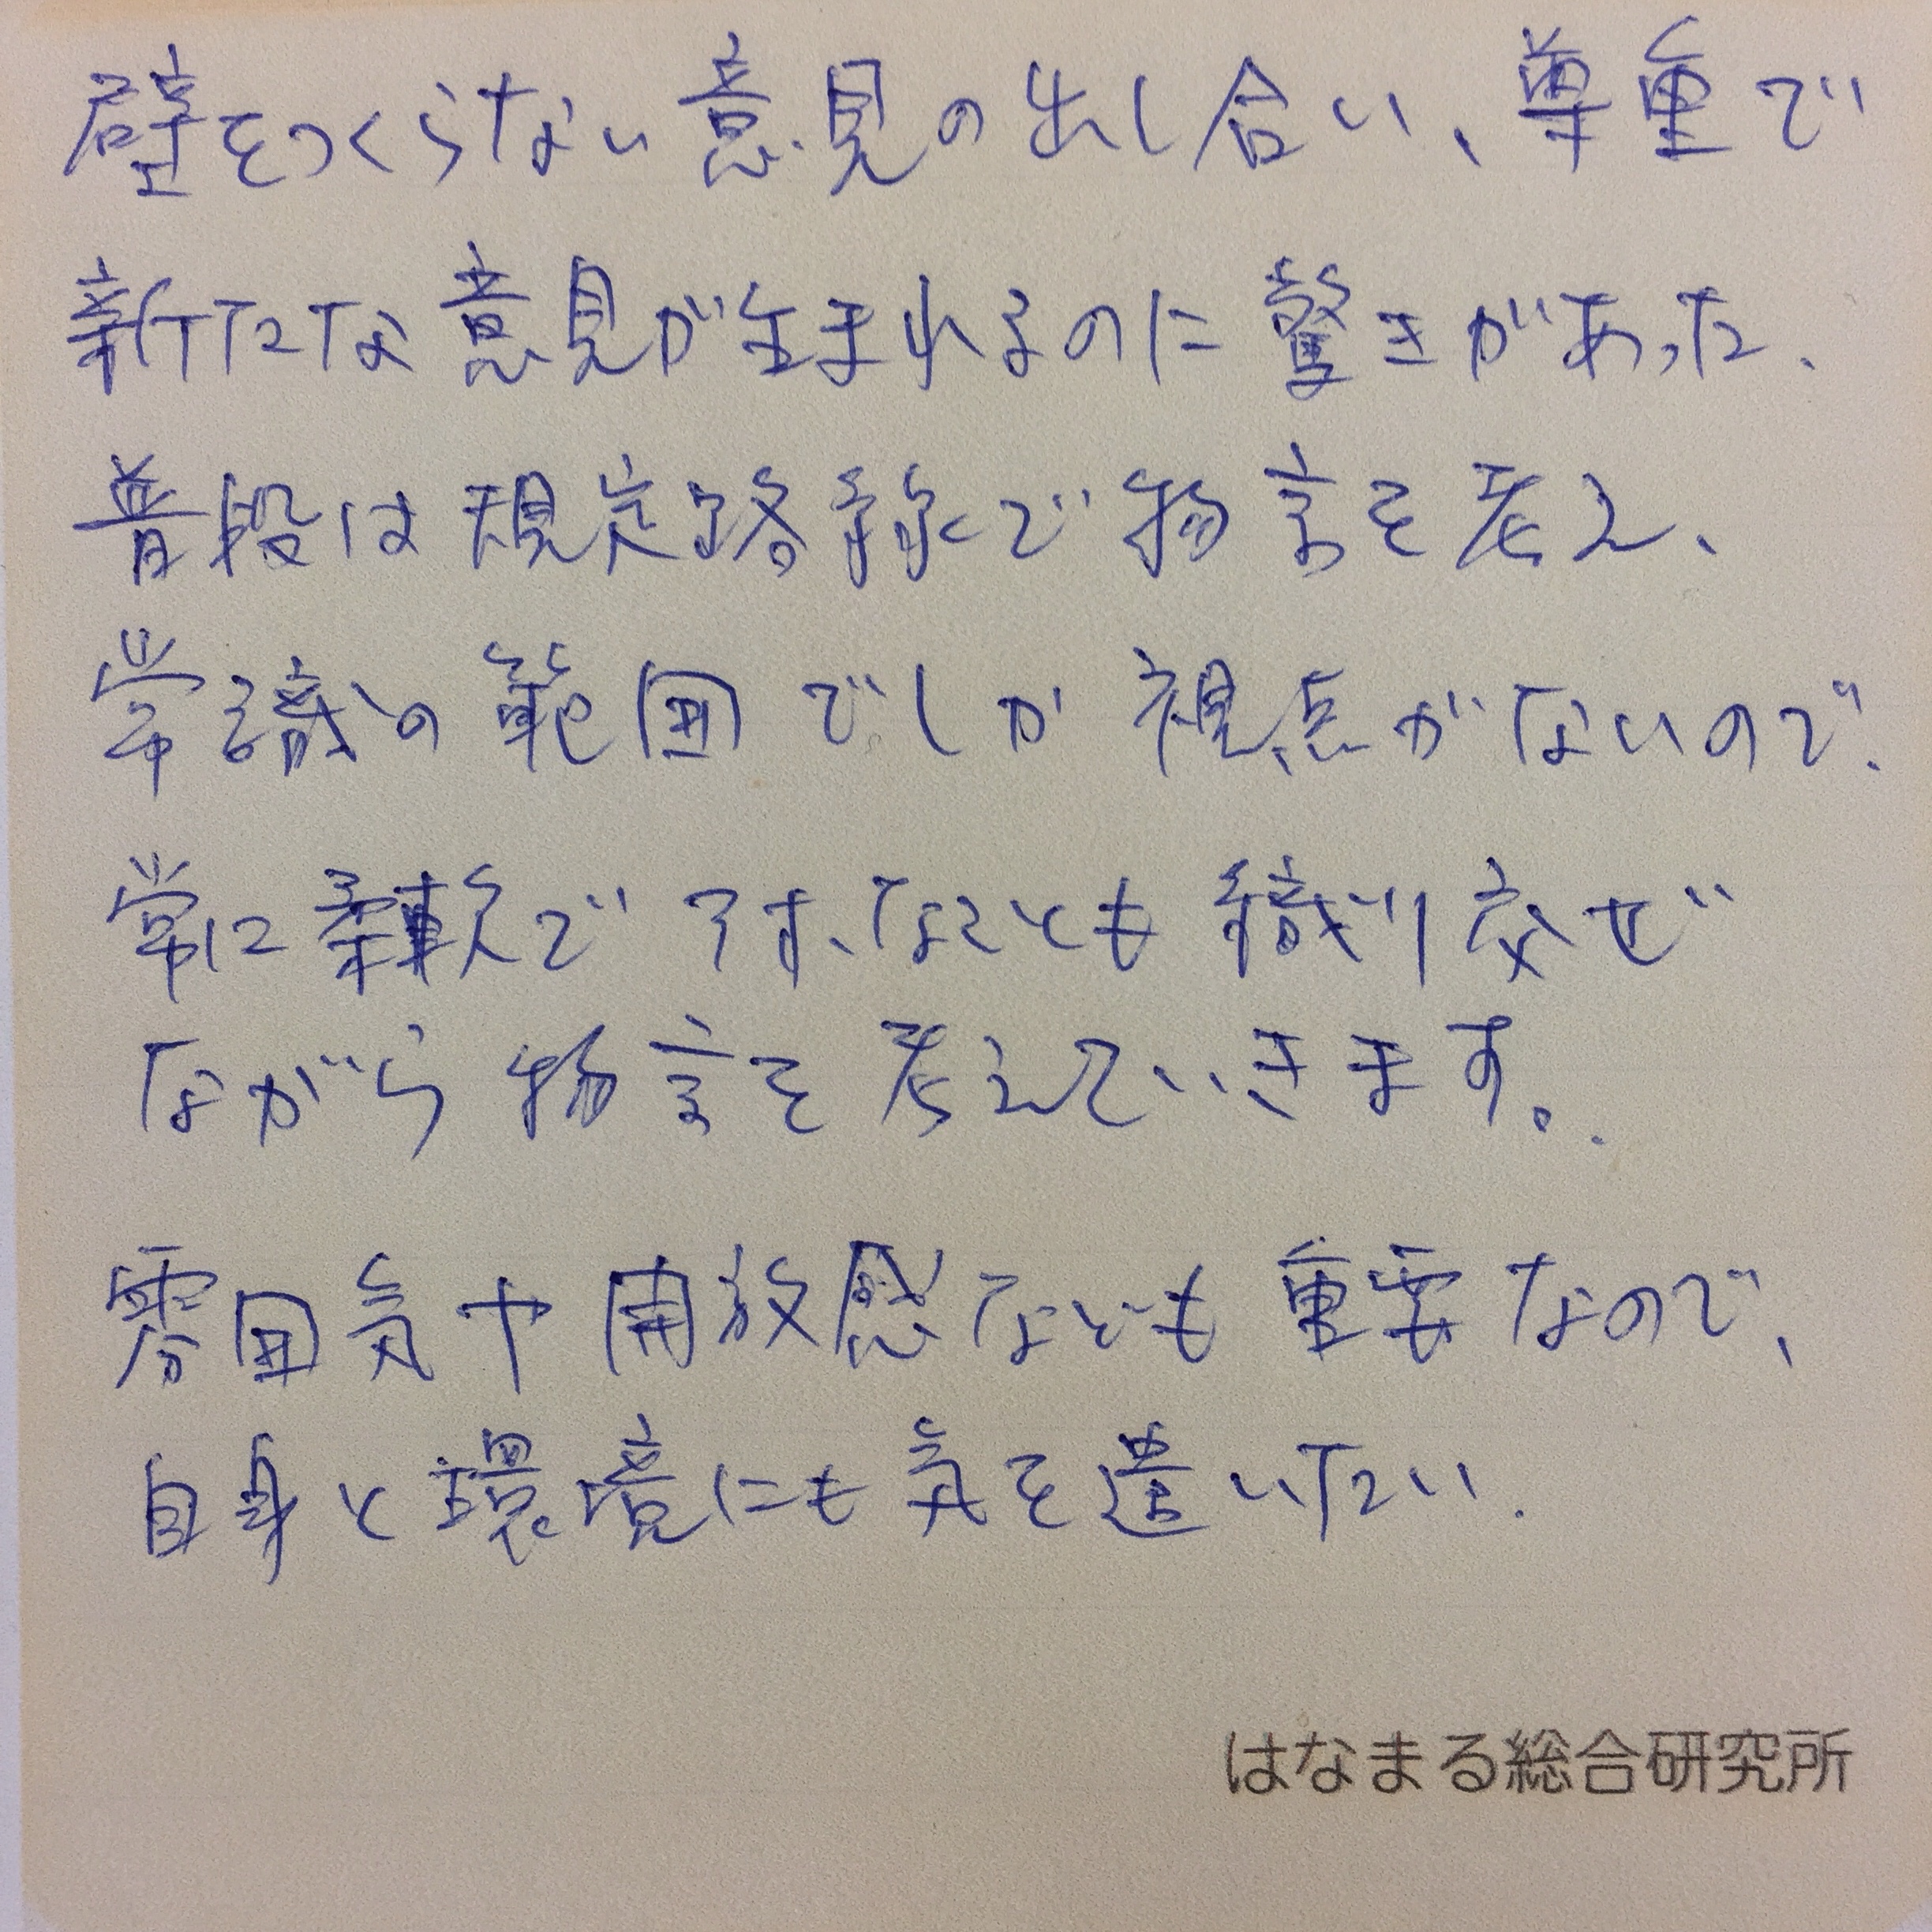 壁をつくらない意見の出し合い、尊重で
新たな意見が生まれるのに驚きがあった、
普段は規定路線で物言を考え、
常識の範囲でしか視点がないので、
常に柔軟で なども織り交ぜ
ながら物言を考えていきます。
雰囲気や開放感なども重要なので、
自身と環境にも気を遣いたい.
はなまる総合研究所